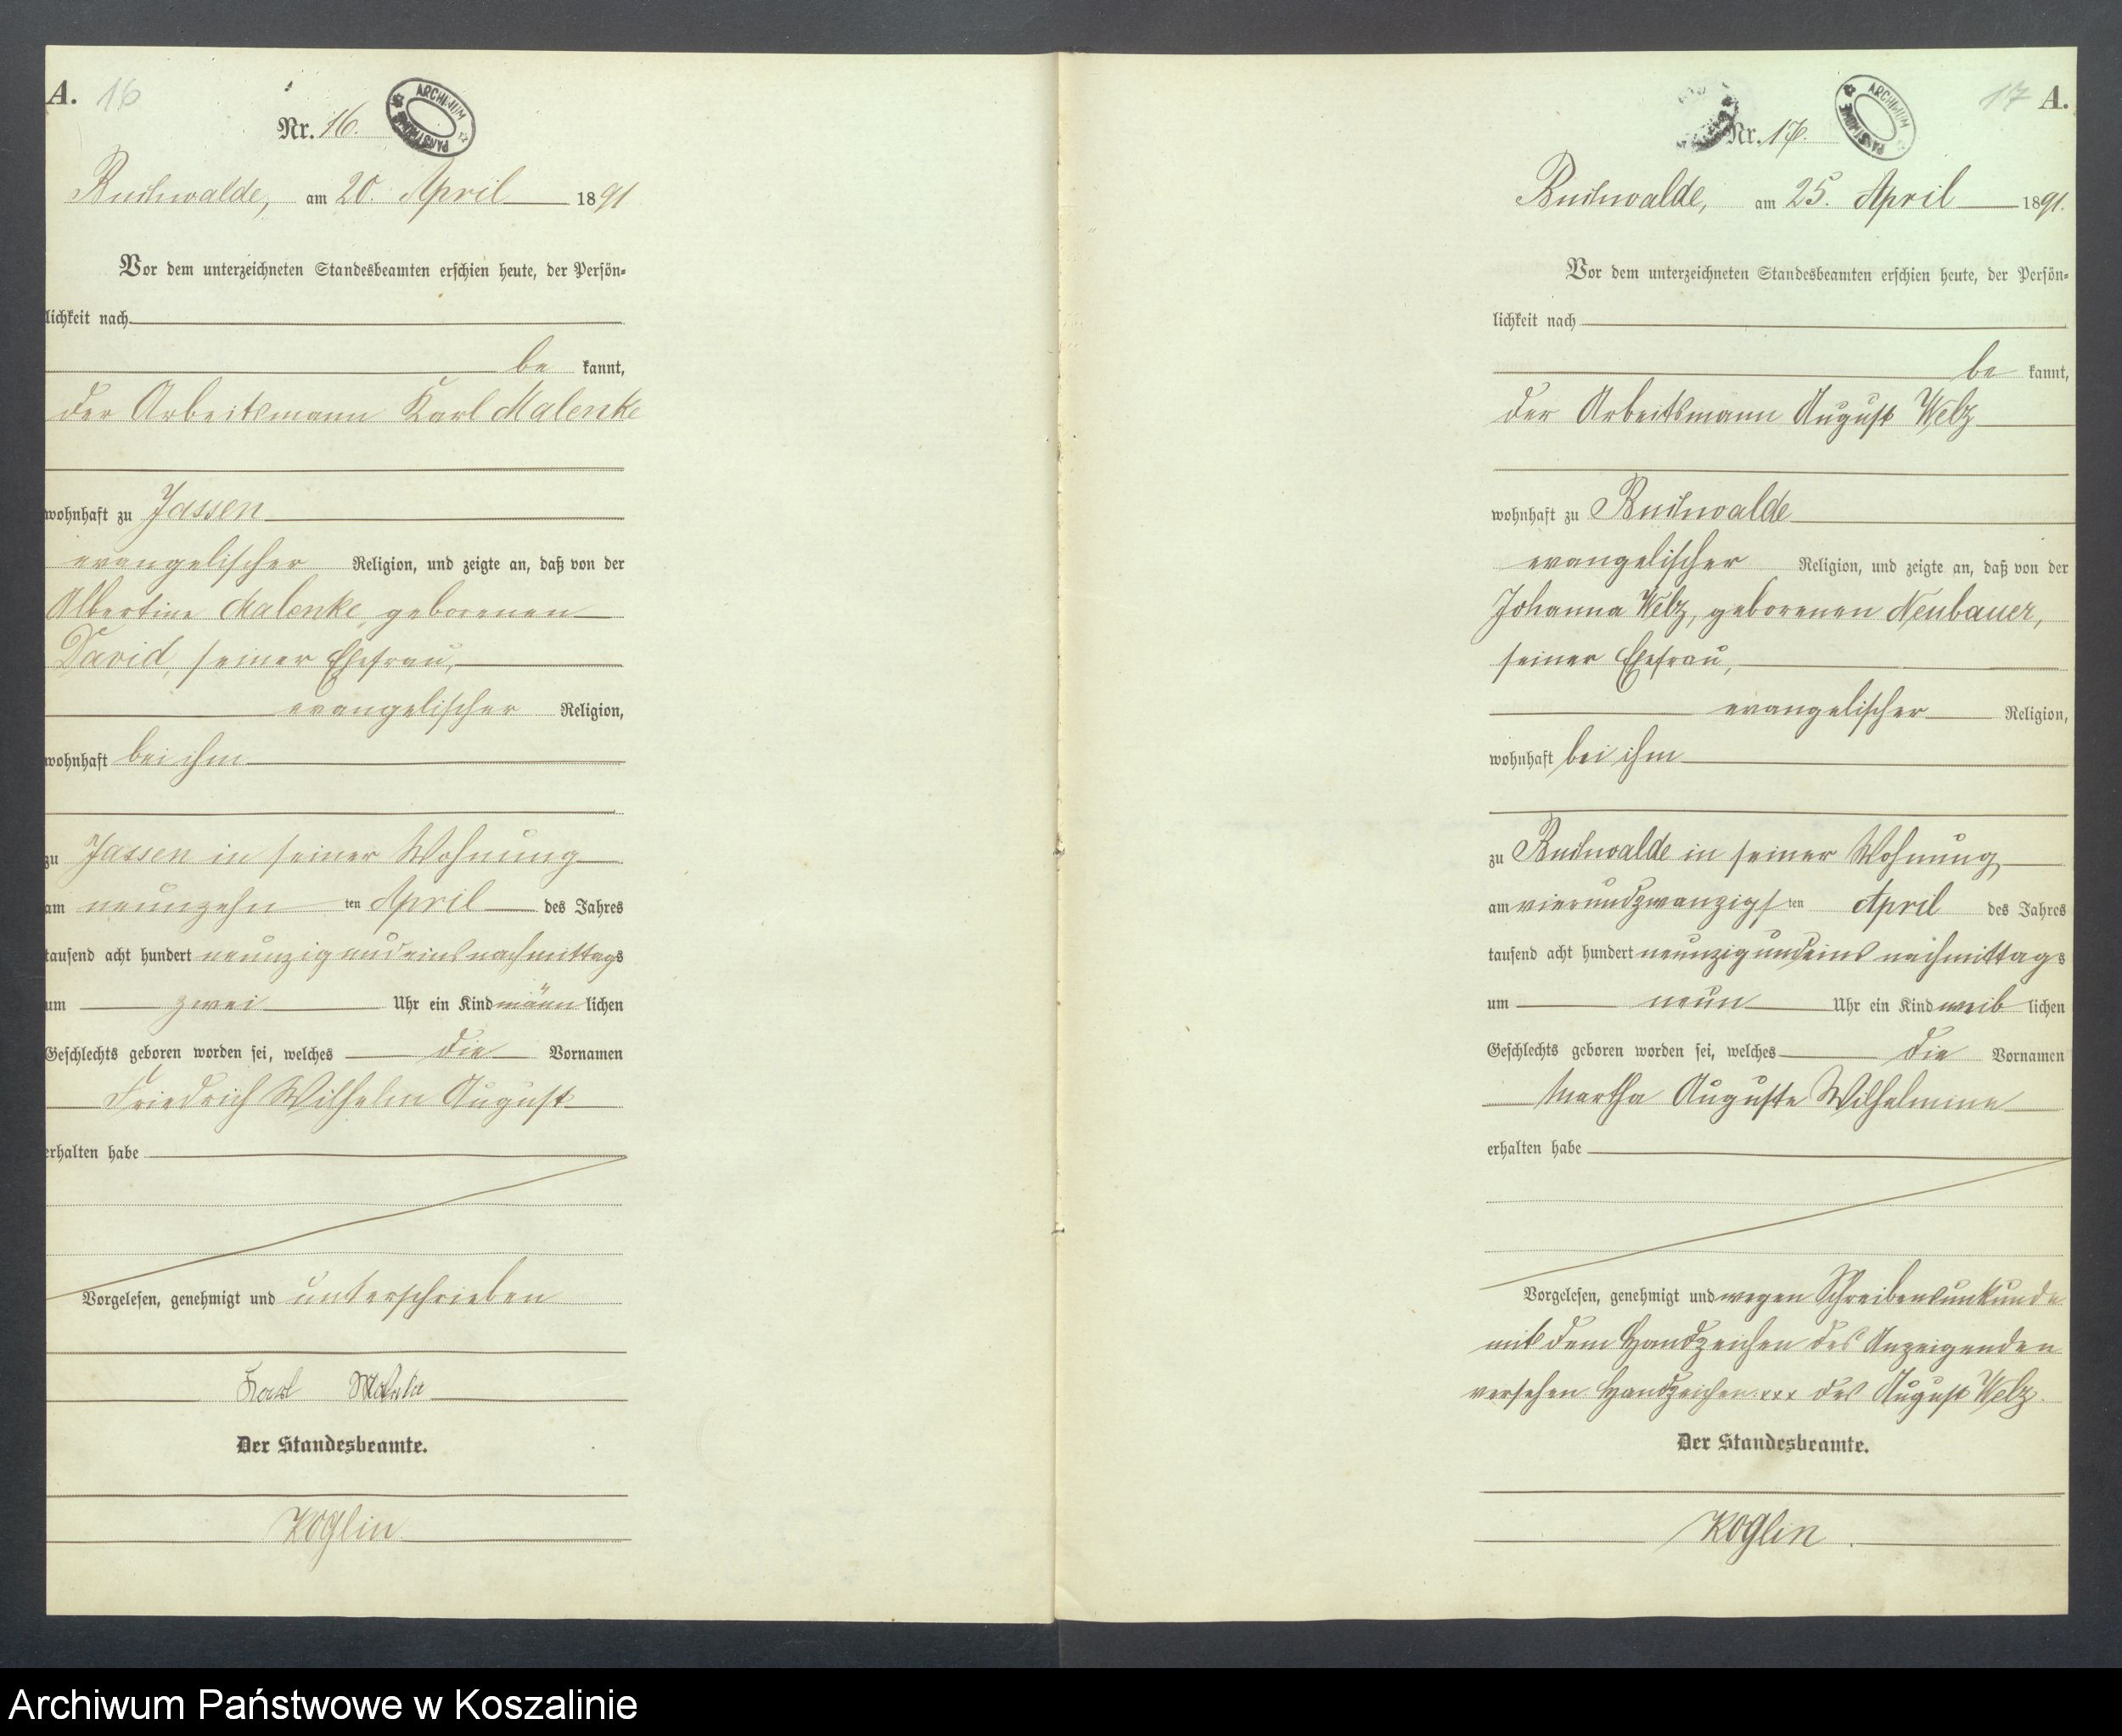 A. 16
Nr. 16.
ARCHIWUM PAŃSTWOWE
Buchwalde, am 20. April 1891
Vor dem unterzeichneten Standesbeamten erschien heute, der Persön-
lichkeit nach
be kannt,
der Arbeitsmann Karl Malenke
wohnhaft zu Jassen
evangelischer Religion, und zeigte an, daß von der
Albertine Malenke, geborenen
David, seiner Ehefrau,
evangelischer Religion,
wohnhaft bei ihm
zu Jassen in seiner Wohnung
am neunzehn ten April des Jahres
tausend acht hundert neunzig und eins nachmittags
um zwei Uhr ein Kind männ lichen
Geschlechts geboren worden sei, welches die Vornamen
Friedrich Wilhelm August
erhalten habe
Vorgelesen, genehmigt und unterschrieben
Karl
Der Standesbeamte.
Koglin
17 A.
Nr. 17.
ARCHIWUM PAŃSTWOWE
Buchwalde, am 25. April 1891.
Vor dem unterzeichneten Standesbeamten erschien heute, der Persön-
lichkeit nach
be kannt,
der Arbeitsmann August Welz
wohnhaft zu Buchwalde
evangelischer Religion, und zeigte an, daß von der
Johanna Welz, geborenen Neubauer,
seiner Ehefrau,
evangelischer Religion,
wohnhaft bei ihm
zu Buchwalde in seiner Wohnung
am vierundzwanzigs ten April des Jahres
tausend acht hundert neunzig und eins nachmittags
um neun Uhr ein Kind weib lichen
Geschlechts geboren worden sei, welches die Vornamen
Martha Auguste Wilhelmine
erhalten habe
Vorgelesen, genehmigt und wegen Schreibensunkunde
mit dem Handzeichen des Anzeigenden
versehen. Handzeichen xxx des August Welz.
Der Standesbeamte.
Koglin.
Archiwum Państwowe w Koszalinie